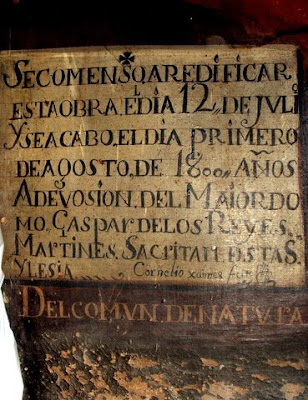 SECOMENSO, AREDIFICAR
ESTAOBRA, ElDIA 12,, DE JULI
YSEACABO, EL DIA PRIMERO
DE AGOSTO, DE 1800,, AÑOS
ADEVOSION. DEL MAIORDO
MO, GASPAR DELOS REYES,
MARTINES, SACRITAN DESTA S
YLESIA Cornelio
DELCOMUN. DENATURA